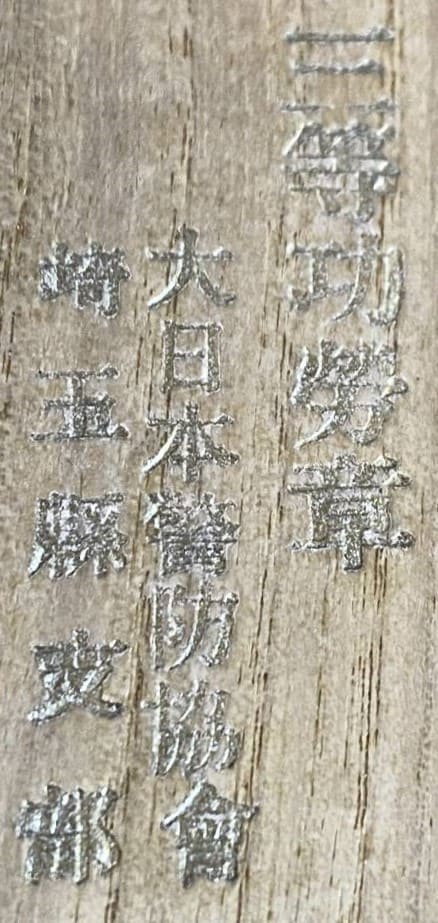 三等功勞章
大日本警防協會
埼玉縣支部